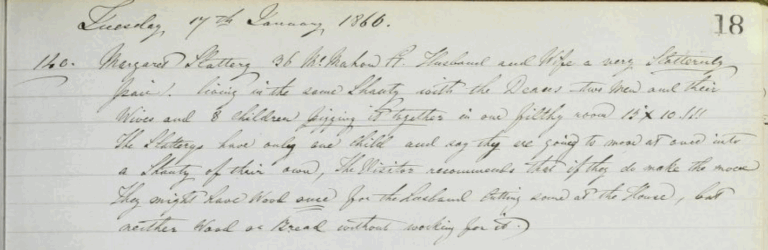 Tuesday 17th January 1860.
18
140. Margaret Slattery 36 McMahon St. Husband and Wife a very Slatternly
pair. living in the same Shanty with the Deans - two Men and their
Wives and 8 children pigging it together in one filthy room 15 x 10 !!!
The Slatterys have only one child and say they are going to move at once into
a Shanty of their own, The Visitor recommends that if they do make the move
they might have Wood once for the husband Cutting some at the House, but
neither Wood or Bread without working for it.